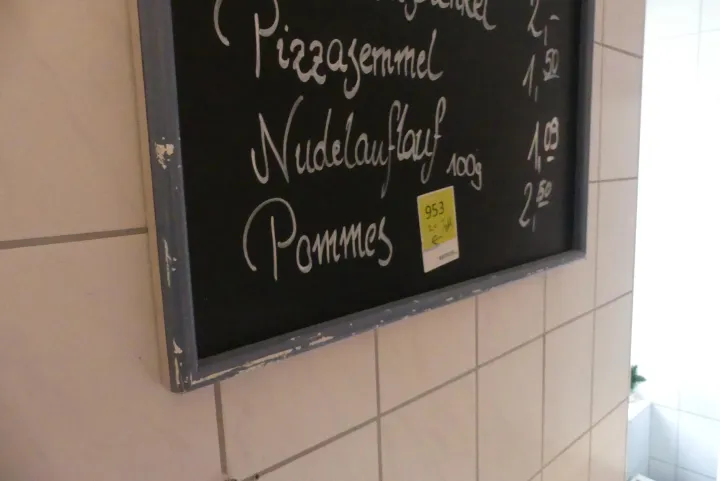 2,-
Pizzasemmel 1,50
Nudelauflauf 100g 1,09
Pommes 2,50
953